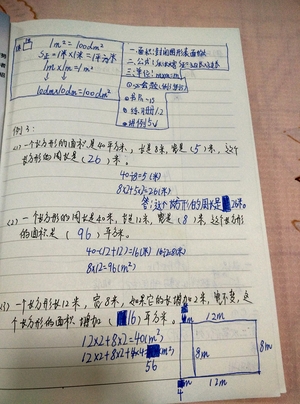 1m²=100dm²
S正=1米×1米=1平方米
1m×1m=1m²
10dm×10dm=100dm²
一.面积:封闭图形表面的
二.公式:
三.单位:
例3:
(1)一个长方形的面积是40平方米,长是8米,宽是(5)米,这个
长方形的周长是(26)米。
40÷8=5(米)
8x2+5x2=26(米)
答:这个长方形的周长是26米。
(2)一个长方形的周长是40米,长12米,宽是(8)米,这个长方形
的面积是(96)平方米。
40-(12+12)=16(米) 16÷2=8(米)
8x12=96(m²)
(3)一个长方形长12米,宽8米,如果它的长增加2米,宽不变,这
个长方形的面积增加(16)平方米。
12x2+8x2=40(m²)
12x2+8x2+4x4=
56
12m
8m
8m
12m
4